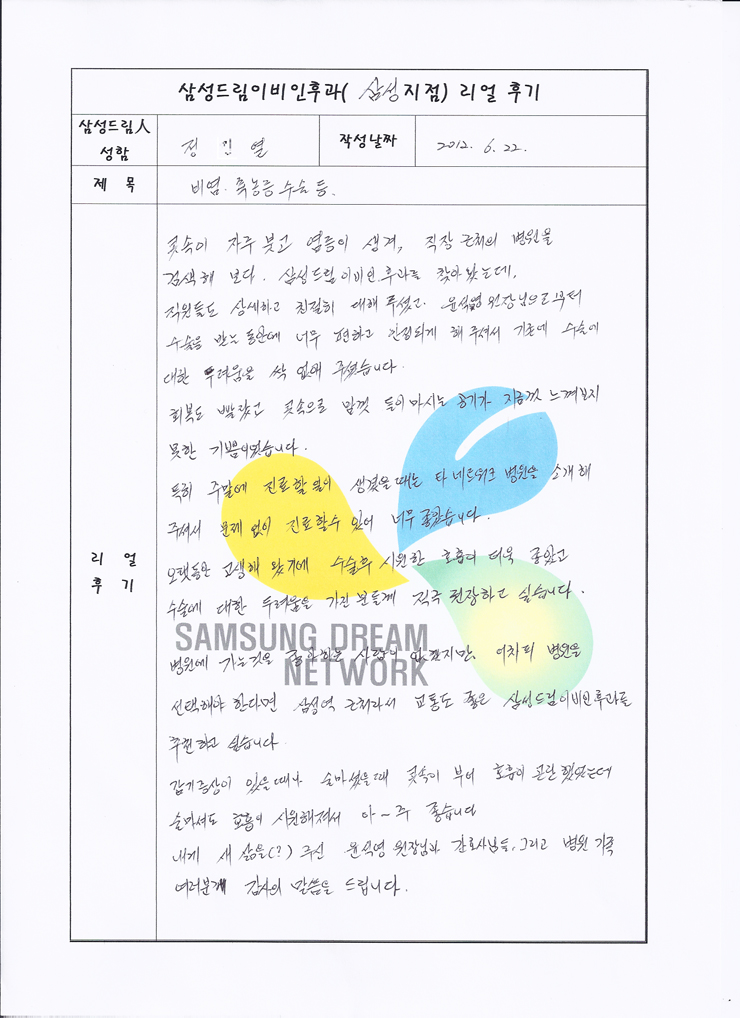 삼성드림이비인후과( 삼성지점) 리얼 후기
삼성드림人
성함
정 진 열
작성날짜
2012. 6. 22.
제 목
비염. 축농증 수술 등.
리 얼
후 기
콧속이 자주 붓고 염증이 생겨, 직장 근처의 병원을
검색해 보다. 삼성드림이비인후과를 찾아 왔는데,
직원들도 상세하고 친절히 대해 주셨고. 윤석영 원장님으로부터
수술을 받는 동안에 너무 편하고 안심되게 해 주셔서 기존에 수술에
대한 두려움을 싹 없애 주셨습니다.
회복도 빨랐고 콧속으로 맘껏 들이마시는 공기가 지금껏 느껴보지
못한 기쁨이었습니다.
특히 주말에 진료할 일이 생겼을때는 타 네트워크 병원을 소개해
주셔서 문제 없이 진료할수 있어 너무 좋았습니다.
오랫동안 고생해 왔기에 수술후 시원한 호흡이 더욱 좋았고
수술에 대한 두려움을 가진 분들께 적극 권장하고 싶습니다.
병원에 가는것을 좋아하는 사람이 없겠지만, 어차피 병원을
선택해야 한다면 삼성역 근처라서 교통도 좋은 삼성드림이비인후과를
추천하고 싶습니다.
감기증상이 있을때나 술마셨을때 콧속이 부어 호흡이 곤란했었는데
술마셔도 호흡이 시원해져서 아~주 좋습니다
내게 새 삶을(?) 주신 윤석영 원장님과 간호사님들, 그리고 병원 가족
여러분께 감사의 말씀을 드립니다.
SAMSUNG DREAM
NETWORK